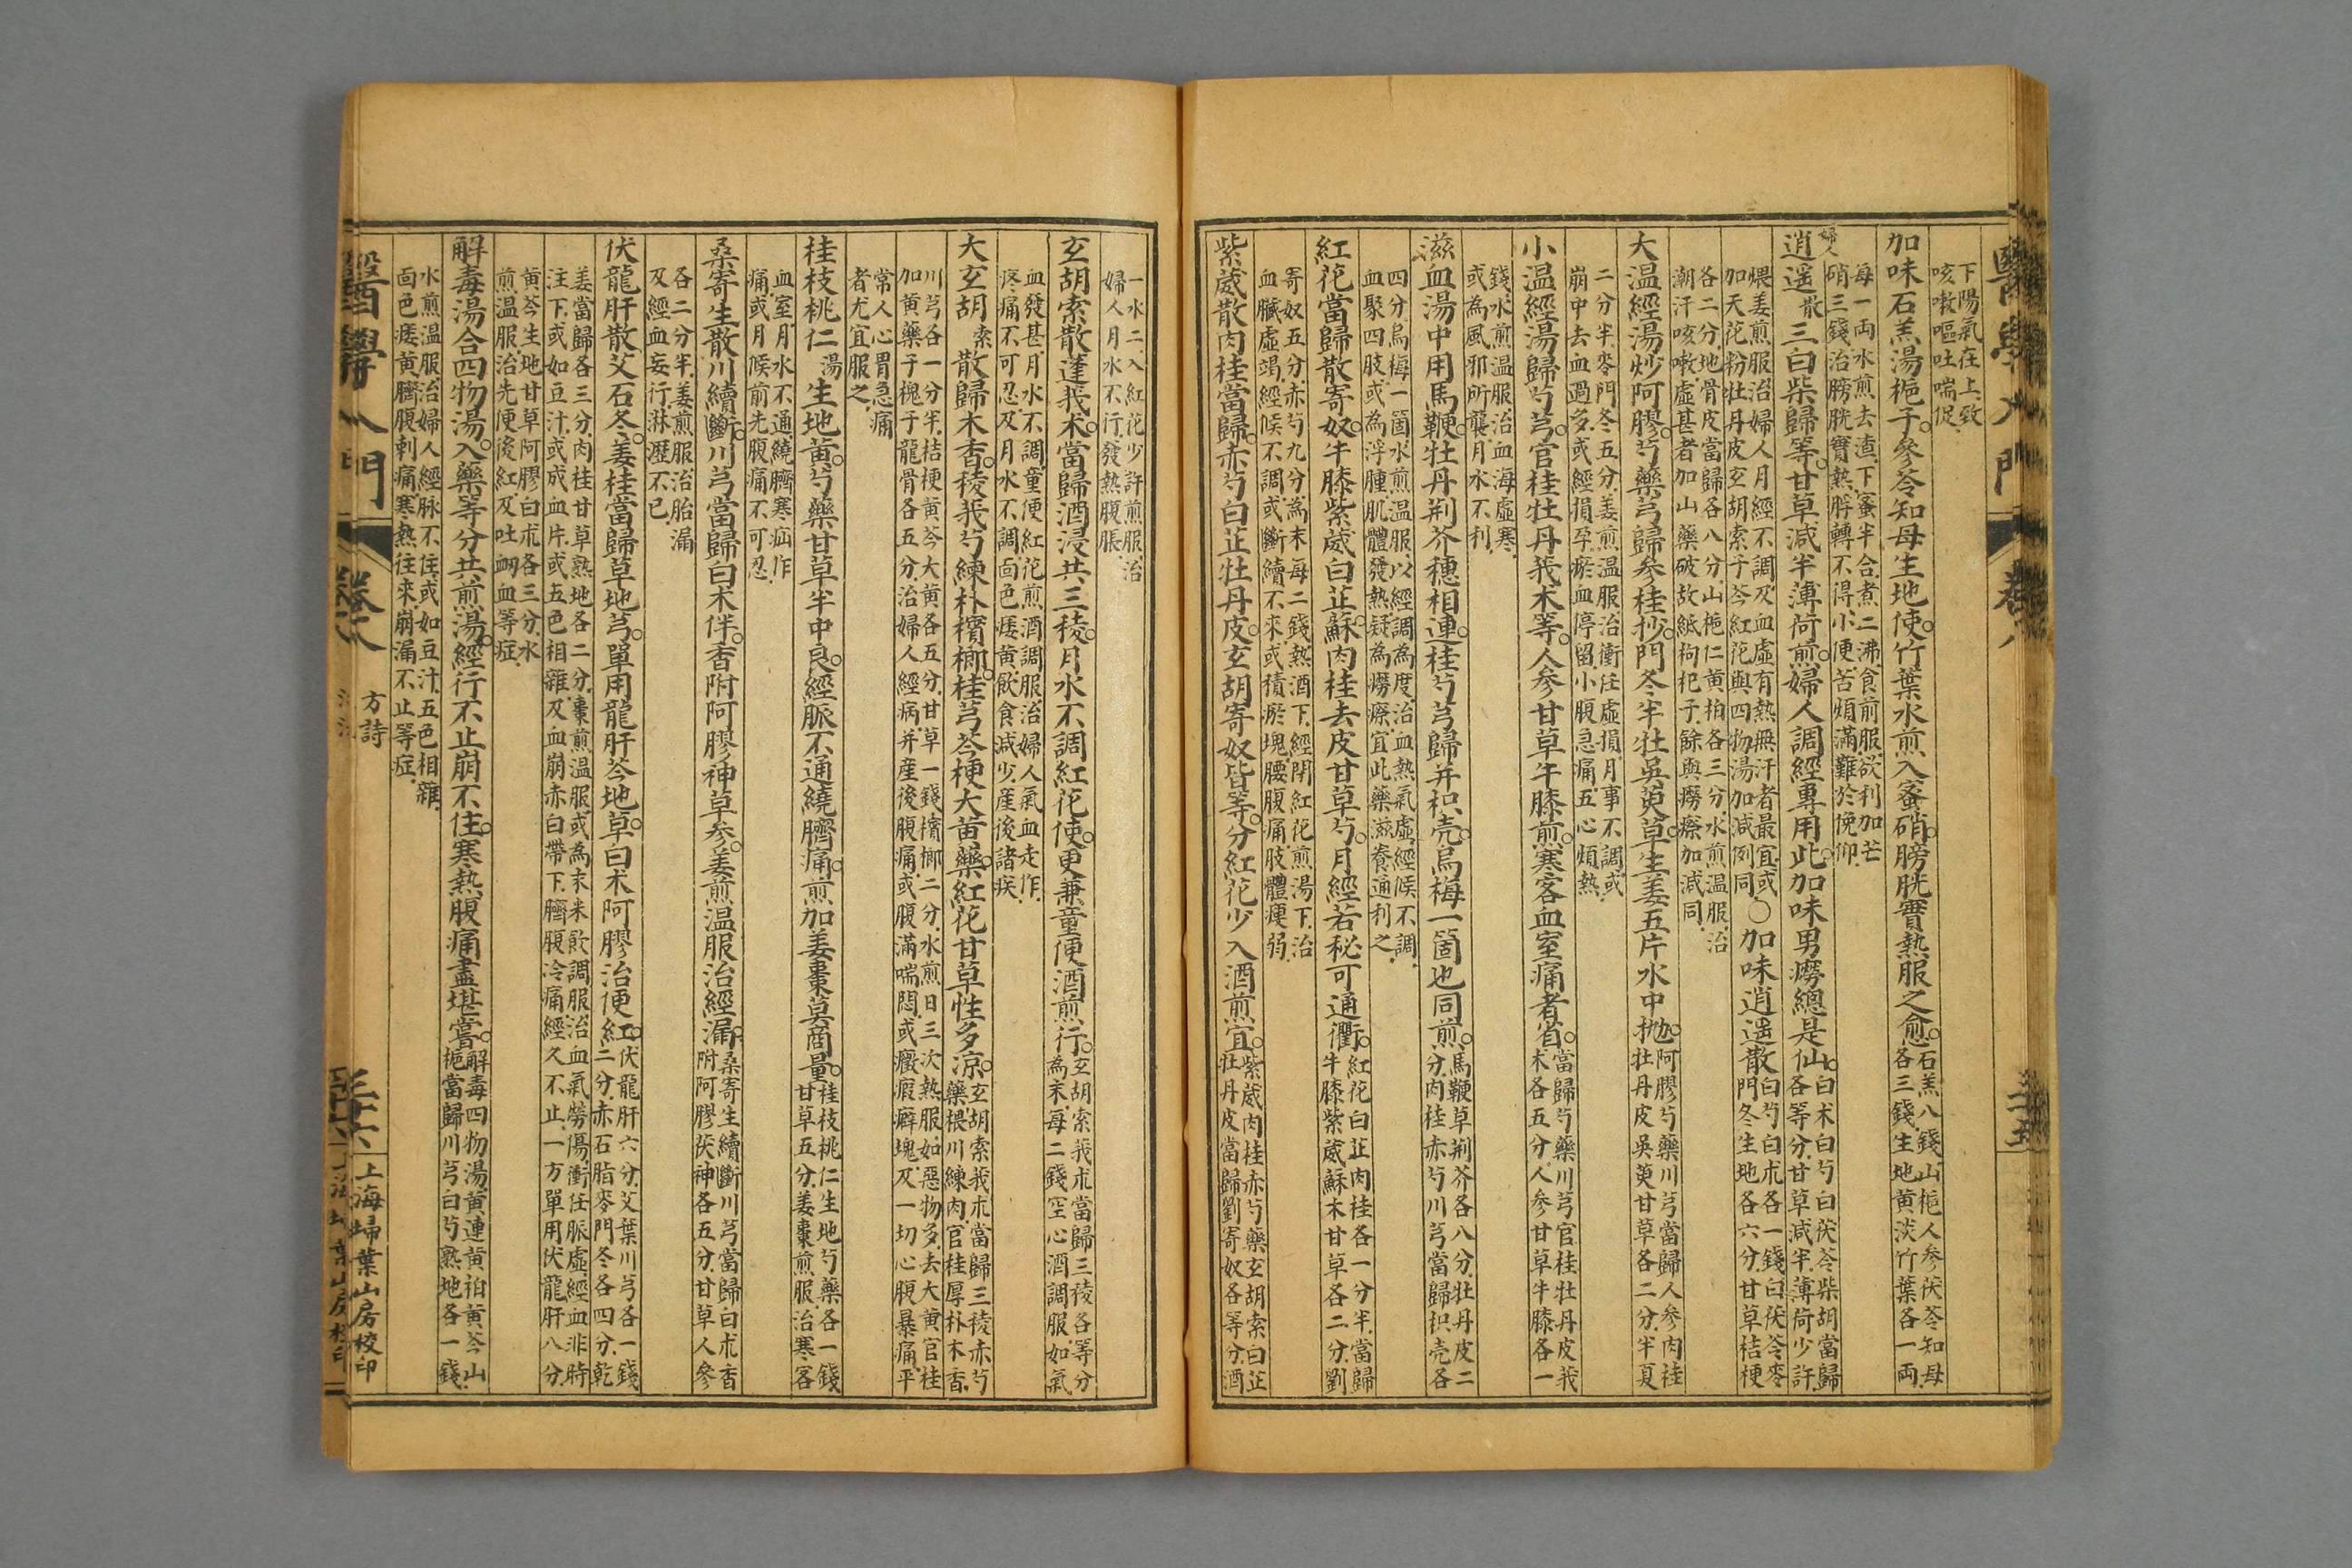 醫學入門
卷八
三十五
下陽氣在上致
咳嗽嘔吐喘促
加味石羔湯梔子參苓知母生地使竹葉水煎入蜜硝膀胱實熱服之愈石羔八錢山梔人參伏苓知母
各三錢生地黃淡竹葉各一兩
每一兩水煎去渣下蜜半合煮二沸食前服欲利加芒
硝三錢治膀胱實熱脬轉不得小便苦煩滿難於俛仰
婦人逍遙散三白柴歸等甘草減半薄荷煎婦人調經專用此加味男癆總是仙白朮白芍白茯苓柴胡當歸
各等分甘草減半薄荷少許
煨姜煎服治婦人月經不調及血虛有熱無汗者最宜或
加天花粉牡丹皮玄胡索子芩紅花與四物湯加減例同○加味逍遙散白芍白朮各一錢白茯苓麥
門冬生地各六分甘草桔梗
各二分地骨皮當歸各八分山梔仁黃柏各三分水煎溫服治
潮汗咳嗽虛甚者加山藥破故紙枸杞子餘與癆瘵加減同
大温經湯炒阿膠芍藥芎歸參桂抄門冬半牡吳萸草生姜五片水中拋阿膠芍藥川芎當歸人參肉桂
牡丹皮吳萸甘草各二分半夏
二分半麥門冬五分姜煎温服治衝任虛損月事不調或
崩中去血過多或經損孕瘀血停留小腹急痛五心煩熱
小温經湯歸芍芎官桂牡丹莪朮等人參甘草牛膝煎寒客血室痛者省當歸芍藥川芎官桂牡丹皮莪
朮各五分人參甘草牛膝各一
錢水煎温服治血海虛寒
或為風邪所襲月水不利
滋血湯中用馬鞭牡丹荆芥穗相連桂芍芎歸并枳壳烏梅一箇也同煎馬鞭草荆芥各八分牡丹皮二
分肉桂赤芍川芎當歸枳壳各
四分烏梅一箇水煎温服以經調為度治血熱氣虛經候不調
血聚四肢或為浮腫肌體發熱疑為癆瘵宜此藥滋養通利之
紅花當歸散寄奴牛膝紫葳白芷蘇肉桂去皮甘草芍月經若秘可通衢紅花白芷肉桂各一分半當歸
牛膝紫葳蘇木甘草各二分劉
寄奴五分赤芍九分為末每二錢熱酒下經閉紅花煎湯下治
血臟虛竭經候不調或斷續不來或積瘀塊腰腹痛肢體瘦弱
紫葳散肉桂當歸赤芍白芷牡丹皮玄胡寄奴皆等分紅花少入酒煎宜紫葳肉桂赤芍藥玄胡索白芷
牡丹皮當歸劉寄奴各等分酒
一水二入紅花少許煎服治
婦人月水不行發熱腹脹
玄胡索散蓬莪朮當歸酒浸共三稜月水不調紅花使更兼童便酒煎行玄胡索莪朮當歸三稜各等分
為末每二錢空心酒調服如氣
血發甚月水不調童便紅花煎酒調服治婦人氣血走作
疼痛不可忍及月水不調面色痿黃飲食減少產後諸疾
大玄胡索散歸木香稜莪芍練朴檳榔桂芎芩梗大黃藥紅花甘草性多凉玄胡索莪朮當歸三稜赤芍
藥煨川練肉官桂厚朴木香
川芎各一分半桔梗黃芩大黃各五分甘草一錢檳榔二分水煎日三次熱服如惡物多去大黃官桂
加黃藥子槐子龍骨各五分治婦人經病并產後腹痛或腹滿喘悶或癥瘕癖塊及一切心腹暴痛平
常人心胃急痛
者尤宜服之
桂枝桃仁湯生地黃芍藥甘草半中良經脈不通繞臍痛煎加姜棗莫商量桂枝桃仁生地芍藥各一錢
甘草五分姜棗煎服治寒客
血室月水不通繞臍寒疝作
痛或月候前先腹痛不可忍
桑寄生散川續斷川芎當歸白朮伴香附阿膠神草參姜煎温服治經漏桑寄生續斷川芎當歸白朮香
附阿膠茯神各五分甘草人參
各二分半姜煎服治胎漏
及經血妄行淋瀝不已
伏龍肝散艾石冬姜桂當歸草地芎單用龍肝芩地草白朮阿膠治便紅伏龍肝六分艾葉川芎各一錢
二分赤石脂麥門冬各四分乾
姜當歸各三分肉桂甘草熟地各二分棗煎温服或為末米飲調服治血氣勞傷衝任脈虛經血非時
注下或如豆汁或成血片或五色相雜及血崩赤白帶下臍腹冷痛經久不止一方單用伏龍肝八分
黃芩生地甘草阿膠白朮各三分水
煎温服治先便後紅及吐衂血等症
解毒湯合四物湯入藥等分共煎湯經行不止崩不住寒熱腹痛盡堪嘗解毒四物湯黃連黃柏黃芩山
梔當歸川芎白芍熟地各一錢
水煎温服治婦人經脉不住或如豆汁五色相雜
面色痿黃臍腹刺痛寒熱往來崩漏不止等症
醫學入門
卷八
方詩
三十六
上海埽葉山房校印